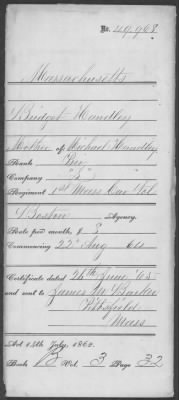 No. 49,968
Massachusetts
Bridget Handley
Mother of Michael Handley
Rank Priv
Company
Regiment 1st Mass Cav Vol
Boston Agency.
Rate per month, $ 8
Commencing 22d Aug 64
Certificate dated 24th June '65
and sent to James M Barker
Pittsfield
Mass
Act 14th July, 1862.
Book B Vol. 3 Page 32